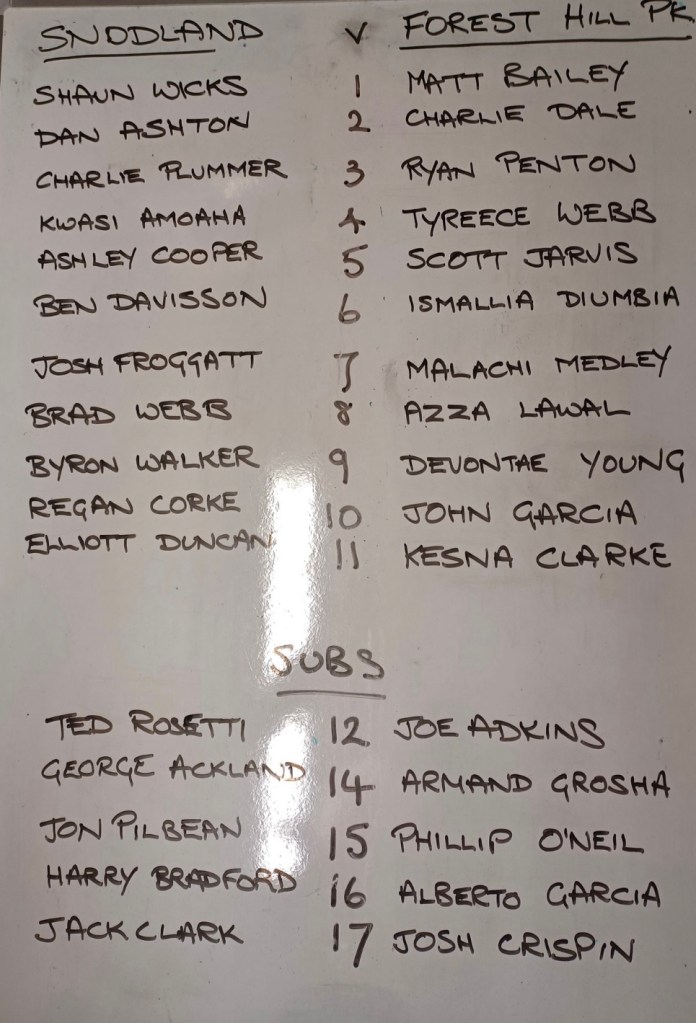 SNODLAND V FOREST HILL PK
SHAUN WICKS 1 MATT BAILEY
DAN ASHTON 2 CHARLIE DALE
CHARLIE PLUMMER 3 RYAN PENTON
KWASI AMOAHA 4 TYREECE WEBB
ASHLEY COOPER 5 SCOTT JARVIS
BEN DAVISSON 6 ISMALLIA DIUMBIA
JOSH FROGGATT 7 MALACHI MEDLEY
BRAD WEBB 8 AZZA LAWAL
BYRON WALKER 9 DEVONTAE YOUNG
REGAN CORKE 10 JOHN GARCIA
ELLIOTT DUNCAN 11 KESNA CLARKE
SUBS
TED ROSETTI 12 JOE ADKINS
GEORGE ACKLAND 14 ARMAND GROSHA
JON PILBEAN 15 PHILLIP O'NEIL
HARRY BRADFORD 16 ALBERTO GARCIA
JACK CLARK 17 JOSH CRISPIN